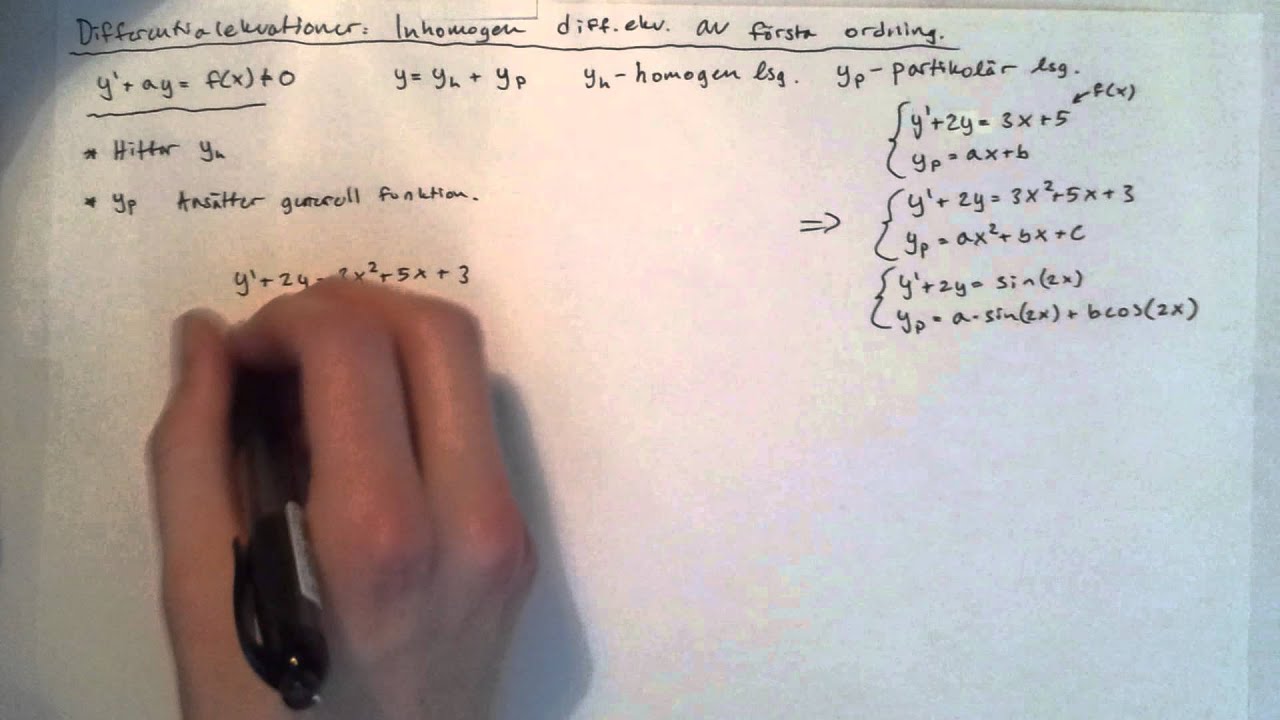 Differentialekvationer: Inhomogen diff.ekv. av första ordning.
y' + ay = f(x) ≠ 0 y = yₕ + yₚ yₕ - homogen lsg. yₚ - partikolär lsg.
* Hittar yₕ
* yₚ Ansätter generell funktion.
y' + 2y = 3x² + 5x + 3
f(x)
y' + 2y = 3x + 5
yₚ = ax + b
⇒
y' + 2y = 3x² + 5x + 3
yₚ = ax² + bx + c
y' + 2y = sin(2x)
yₚ = a · sin(2x) + b cos(2x)